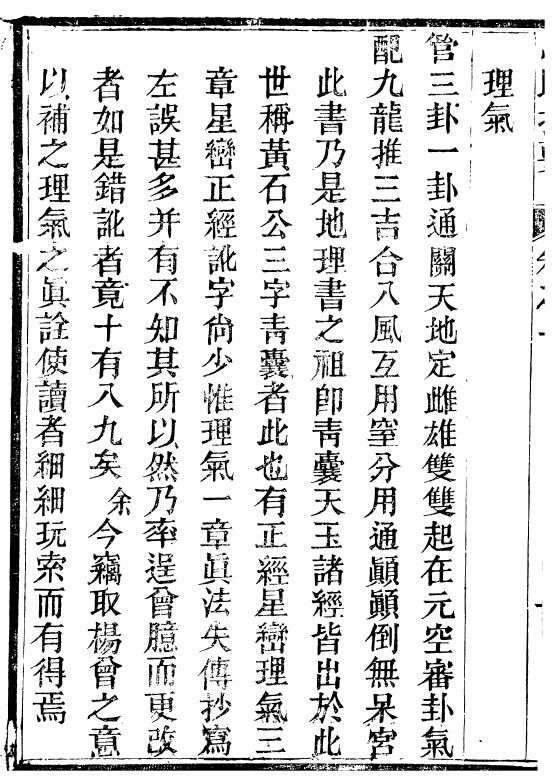 理氣
管三卦一卦通關天地定雌雄雙雙起在元空審卦氣
配九龍推三吉合八風互用窒分用通顚顚倒無呆宮
此書乃是地理書之祖卽靑囊天玉諸經皆出於此
世稱黃石公三字靑囊者此也有正經星巒理氣三
章星巒正經訛字尙少惟理氣一章眞法失傳抄寫
左誤甚多并有不知其所以然乃率逞曾臆而更改
者如是錯訛者竟十有八九矣余今竊取楊曾之意
以補之理氣之眞詮使讀者細細玩索而有得焉